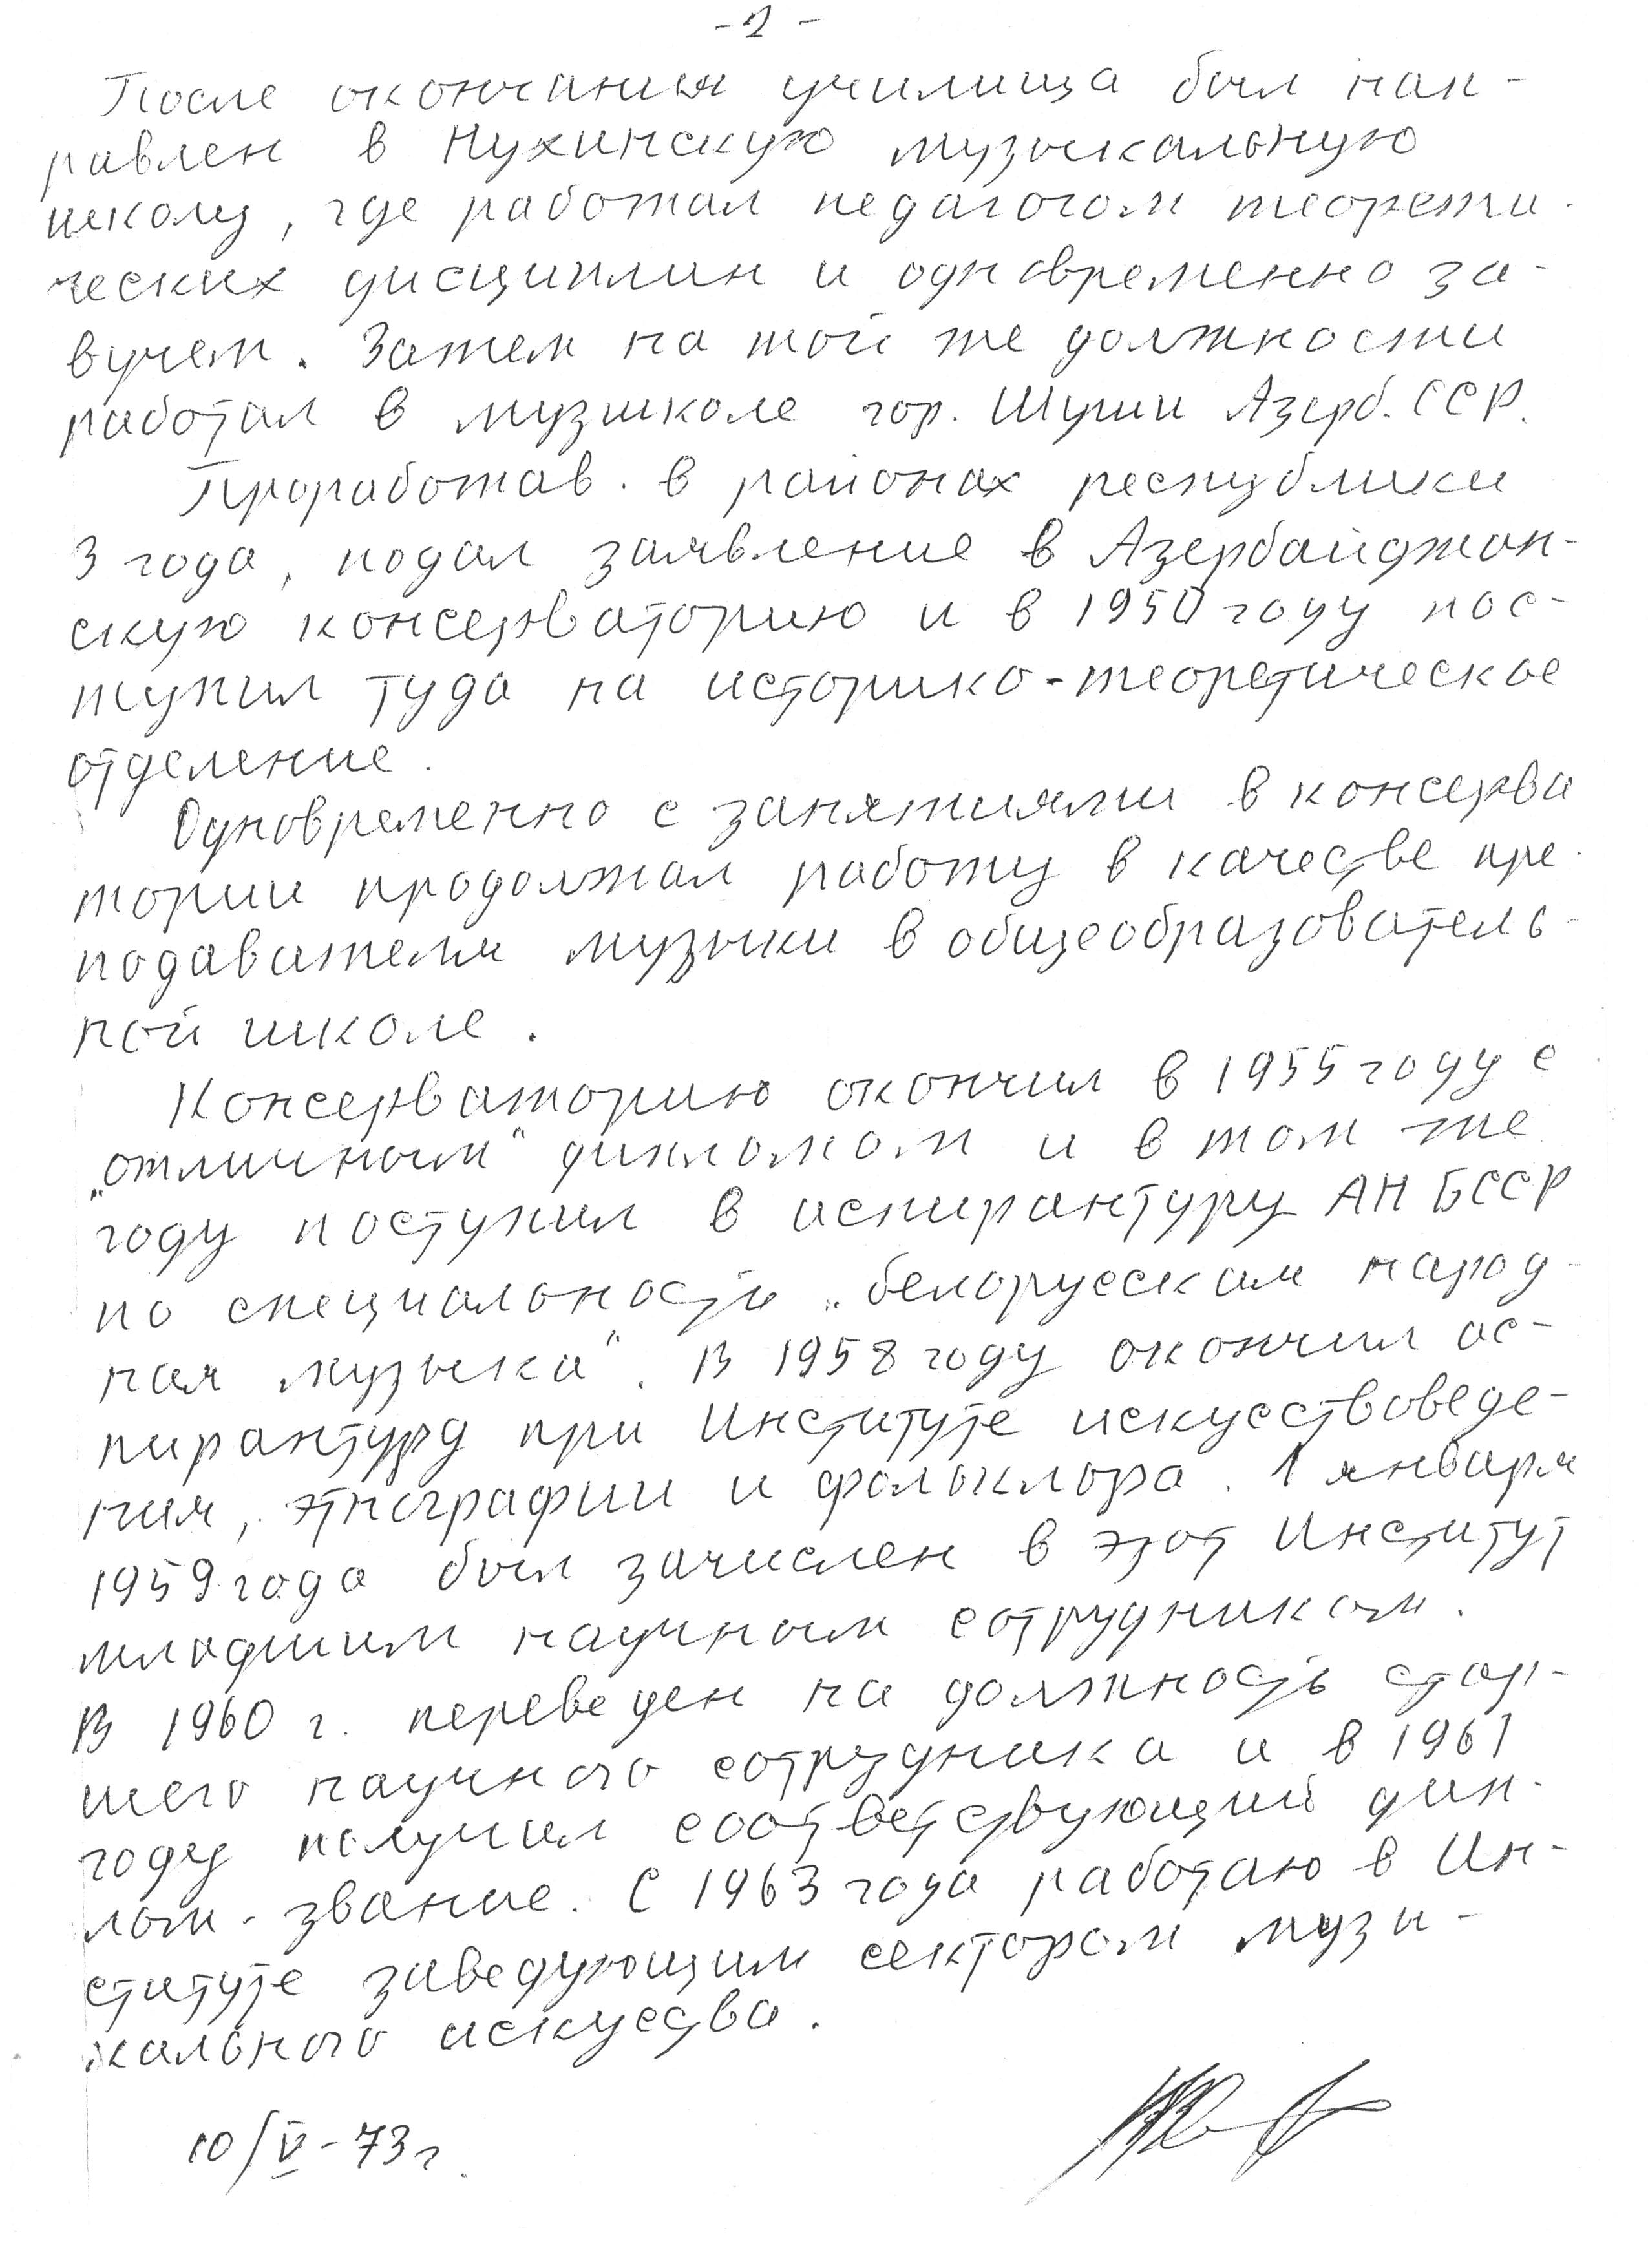 - 2 -
После окончания училища был нап-
равлен в Нухинскую музыкальную
школу, где работал педагогом теорети-
ческих дисциплин и одновременно за-
вучем. Затем на той же должности
работал в музшколе гор. Шуши Азерб. ССР.
Проработав в районах республики
3 года, подал заявление в Азербайджан-
скую консерваторию и в 1950 году пос-
тупил туда на историко-теоретическое
отделение.
Одновременно с занятиями в консерва
тории продолжал работу в качестве пре-
подавателя музыки в общеобразователь-
ной школе.
Консерваторию окончил в 1955 году с
„отличным“ дипломом и в том же
году поступил в аспирантуру АН БССР
по специальность „белорусская народ-
ная музыка“. В 1958 году окончил ас-
пирантуру при Институте искусствоведе-
ния, этнографии и фольклора. 1 января
1959 года был зачислен в этот Институт
младшим научным сотрудником.
В 1960 г. переведен на должность стар-
шего научного сотрудника и в 1961
году получил соответствующий дип-
лом - звание. С 1963 года работаю в Ин-
ституте заведующим сектором музы-
кального искусства.
10/V - 73 г.